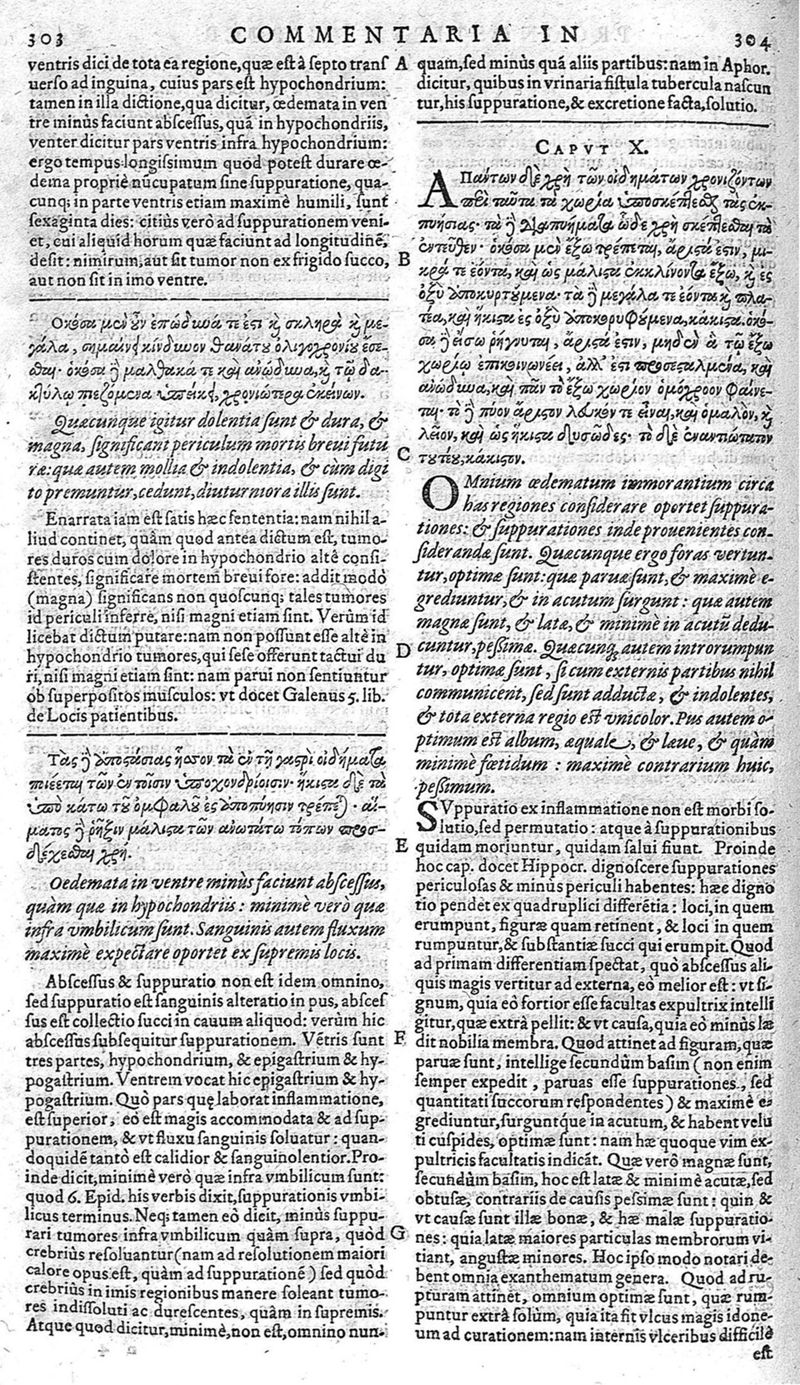 303 COMMENTARIA IN 304
ventris dici de tota ea regione, quæ est à septo trans
uerso ad inguina, cuius pars est hypochondrium:
tamen in illa dictione, qua dicitur, œdemata in ven
tre minùs faciunt abscessus, quã in hypochondriis,
venter dicitur pars ventris infra hypochondrium:
ergo tempus longissimum quòd potest durare œ-
dema propriè nũcupatum sine suppuratione, qua-
cunq; in parte ventris etiam maximè humili, sunt
sexaginta dies: citiùs verò ad suppurationem veni-
et, cui aliquid horum quæ faciunt ad longitudinẽ,
desit: nimirum, aut sit tumor non ex frigido succo,
aut non sit in imo ventre.
Οκόσα μὲν οὖν ἐπώδυνά τε ἐστι κὴ σκληρὰ κὴ με-
γάλα, σημαίνει κίνδυνον θανάτου ὀλιγοχρονίου ἔσε-
σθαι· ὀκόσα ἢ μαλθακά τε καὶ ἀνώδυνα, κὴ τῷ δα-
κτύλῳ πιεζόμενα ὑπείκει, χρονιώτερα ἐκείνων.
Quæcunque igitur dolentia sunt & dura, &
magna, significant periculum mortis breui futu
ræ: quæ autem mollia & indolentia, & cùm digi
to premuntur, cedunt, diuturniora illis sunt.
Enarrata iam est satis hæc sententia: nam nihil a-
liud continet, quàm quod antea dictum est, tumo-
res duros cum dolore in hypochondrio altè consi-
stentes, significare mortem breui fore: addit modò
(magna) significans non quoscunq; tales tumores
id periculi inferre, nisi magni etiam sint. Verùm id
licebat dictum putare: nam non possunt esse altè in
hypochondrio tumores, qui sese offerunt tactui du
ri, nisi magni etiam sint: nam parui non sentiuntur
ob superpositos musculos: vt docet Galenus 5. lib.
de Locis patientibus.
Τὰς ἢ ἀποστάσιας ἧσσον τὰ ἐν τῇ γαστρὶ οἰδήματα
ποιέεται τῶν ἐν τοῖσιν ὑποχονδρίοισιν· ἥκιστα δὲ τὰ
ὑπὸ κάτω τοῦ ὀμφαλοῦ ἐς ἀποπύησιν τρέπεται· αἵ-
ματος ἢ ῥῆξιν μάλιστα τῶν ἀνωτάτω τόπων προσ-
δέχεσθαι χρή.
Oedemata in ventre minùs faciunt abscessus,
quàm quæ in hypochondriis: minimè verò quæ
infra vmbilicum sunt. Sanguinis autem fluxum
maximè expectare oportet ex supremis locis.
Abscessus & suppuratio non est idem omnino,
sed suppuratio est sanguinis alteratio in pus, absces
sus est collectio succi in cauum aliquod: verùm hic
abscessus subsequitur suppurationem. Vẽtris sunt
tres partes, hypochondrium, & epigastrium & hy-
pogastrium. Ventrem vocat hîc epigastrium & hy-
pogastrium. Quò pars quę laborat inflammatione,
est superior, eò est magis accommodata & ad sup-
purationem, & vt fluxu sanguinis soluatur: quan-
doquidẽ tantò est calidior & sanguinolentior. Pro-
inde dicit, minimè verò quæ infra vmbilicum sunt:
quod 6. Epid. his verbis dixit, suppurationis vmbi-
licus terminus. Neq; tamen eò dicit, minùs suppu-
rari tumores infra vmbilicum quàm supra, quòd
crebriùs resoluantur (nam ad resolutionem maiori
calore opus est, quàm ad suppurationẽ) sed quòd
crebriùs in imis regionibus manere soleant tumo-
res indissoluti ac durescentes, quàm in supremis.
Atque quod dicitur, minimè, non est, omnino nun-
A
B
C
D
E
F
G
quam, sed minùs quã aliis partibus: nam in Aphor.
dicitur, quibus in vrinaria fistula tubercula nascun
tur, his suppuratione, & excretione facta, solutio.
CAPVT X.
ΑΠαύτων δὲ χρὴ τῶν οἰδημάτων χρονιζόντων
περὶ ταῦτα τὰ χωρία ὑποσκέπτεσθαι τὰς ἐκ-
πυήσιας· τὰ ἢ διαπυήματα ὧδε χρὴ σκέπτεσθαι τὰ
ἐντεῦθεν· ὀκόσα μὲν ἔξω τρέπεται, ἄριστά ἐστιν, μι-
κρά τε ἐόντα, καὶ ὡς μάλιστα ἐκκλίνοντα ἔξω, κὴ ἐς
ὀξὺ ἀποκυρτούμενα· τὰ ἢ μεγάλα τε ἐόντα κὴ πλα-
τέα, καὶ ἥκιστα ἐς ὀξὺ ἀποκορυφούμενα, κάκιστα· ὀκό-
σα ἢ εἴσω ῥήγνυται, ἄριστά ἐστιν, μηδὲν ἃ τῷ ἔξω
χωρίῳ ἐπικοινωνέει, ἀλλ' ἔστι προσεσταλμένα, καὶ
ἀνώδυνα, καὶ πᾶν τὸ ἔξω χωρίον ὁμόχροον φαίνε-
ται· τὸ ἢ πῦον ἄριστον λευκόν τε εἶναι, καὶ ὁμαλὸν, κὴ
λεῖον, καὶ ὡς ἥκιστα δυσῶδες· τὸ δὲ ἐναντιώτατον
τουτέου, κάκιστον.
OMnium œdematum immorantium circa
has regiones considerare oportet suppura-
tiones: & suppurationes inde prouenientes con-
siderandæ sunt. Quæcunque ergo foras vertun-
tur, optimæ sunt: quæ paruæ sunt, & maximè e-
grediuntur, & in acutum surgunt: quæ autem
magnæ sunt, & latæ, & minimè in acutũ dedu-
cuntur, pessimæ. Quæcunq; autem introrumpun
tur, optimæ sunt, si cum externis partibus nihil
communicent, sed sunt adductæ, & indolentes,
& tota externa regio est vnicolor. Pus autem o-
ptimum est album, æquale, & læue, & quàm
minimè fœtidum: maximè contrarium huic,
pessimum.
SVppuratio ex inflammatione non est morbi so-
lutio, sed permutatio: atque à suppurationibus
quidam moriuntur, quidam salui fiunt. Proinde
hoc cap. docet Hippocr. dignoscere suppurationes
periculosas & minus periculi habentes: hæc digno
tio pendet ex quadruplici differẽtia: loci, in quem
erumpunt, figuræ quam retinent, & loci in quem
rumpuntur, & substantiæ succi qui erumpit. Quod
ad primam differentiam spectat, quò abscessus ali-
quis magis vertitur ad externa, eò melior est: vt si-
gnum, quia eò fortior esse facultas expultrix intelli
gitur, quæ extrà pellit: & vt causa, quia eò minùs læ
dit nobilia membra. Quod attinet ad figuram, quæ
paruæ sunt, intellige secundùm basim (non enim
semper expedit, paruas esse suppurationes, sed
quantitati succorum respondentes) & maximè e-
grediuntur, surguntq́ue in acutum, & habent velu
ti cuspides, optimæ sunt: nam hæ quoque vim ex-
pultricis facultatis indicãt. Quæ verò magnæ sunt,
secundùm basim, hoc est latæ & minimè acutæ, sed
obtusæ, contrariis de causis pessimæ sunt: quin &
vt causæ sunt illæ bonæ, & hæ malæ suppuratio-
nes: quia latæ maiores particulas membrorum vi-
tiant, angustæ minores. Hoc ipso modo notari de-
bent omnia exanthematum genera. Quod ad ru-
pturam attinet, omnium optimæ sunt, quæ rum-
puntur extrà solùm, quia ita fit vlcus magis idone-
um ad curationem: nam internis vlceribus difficilè
est